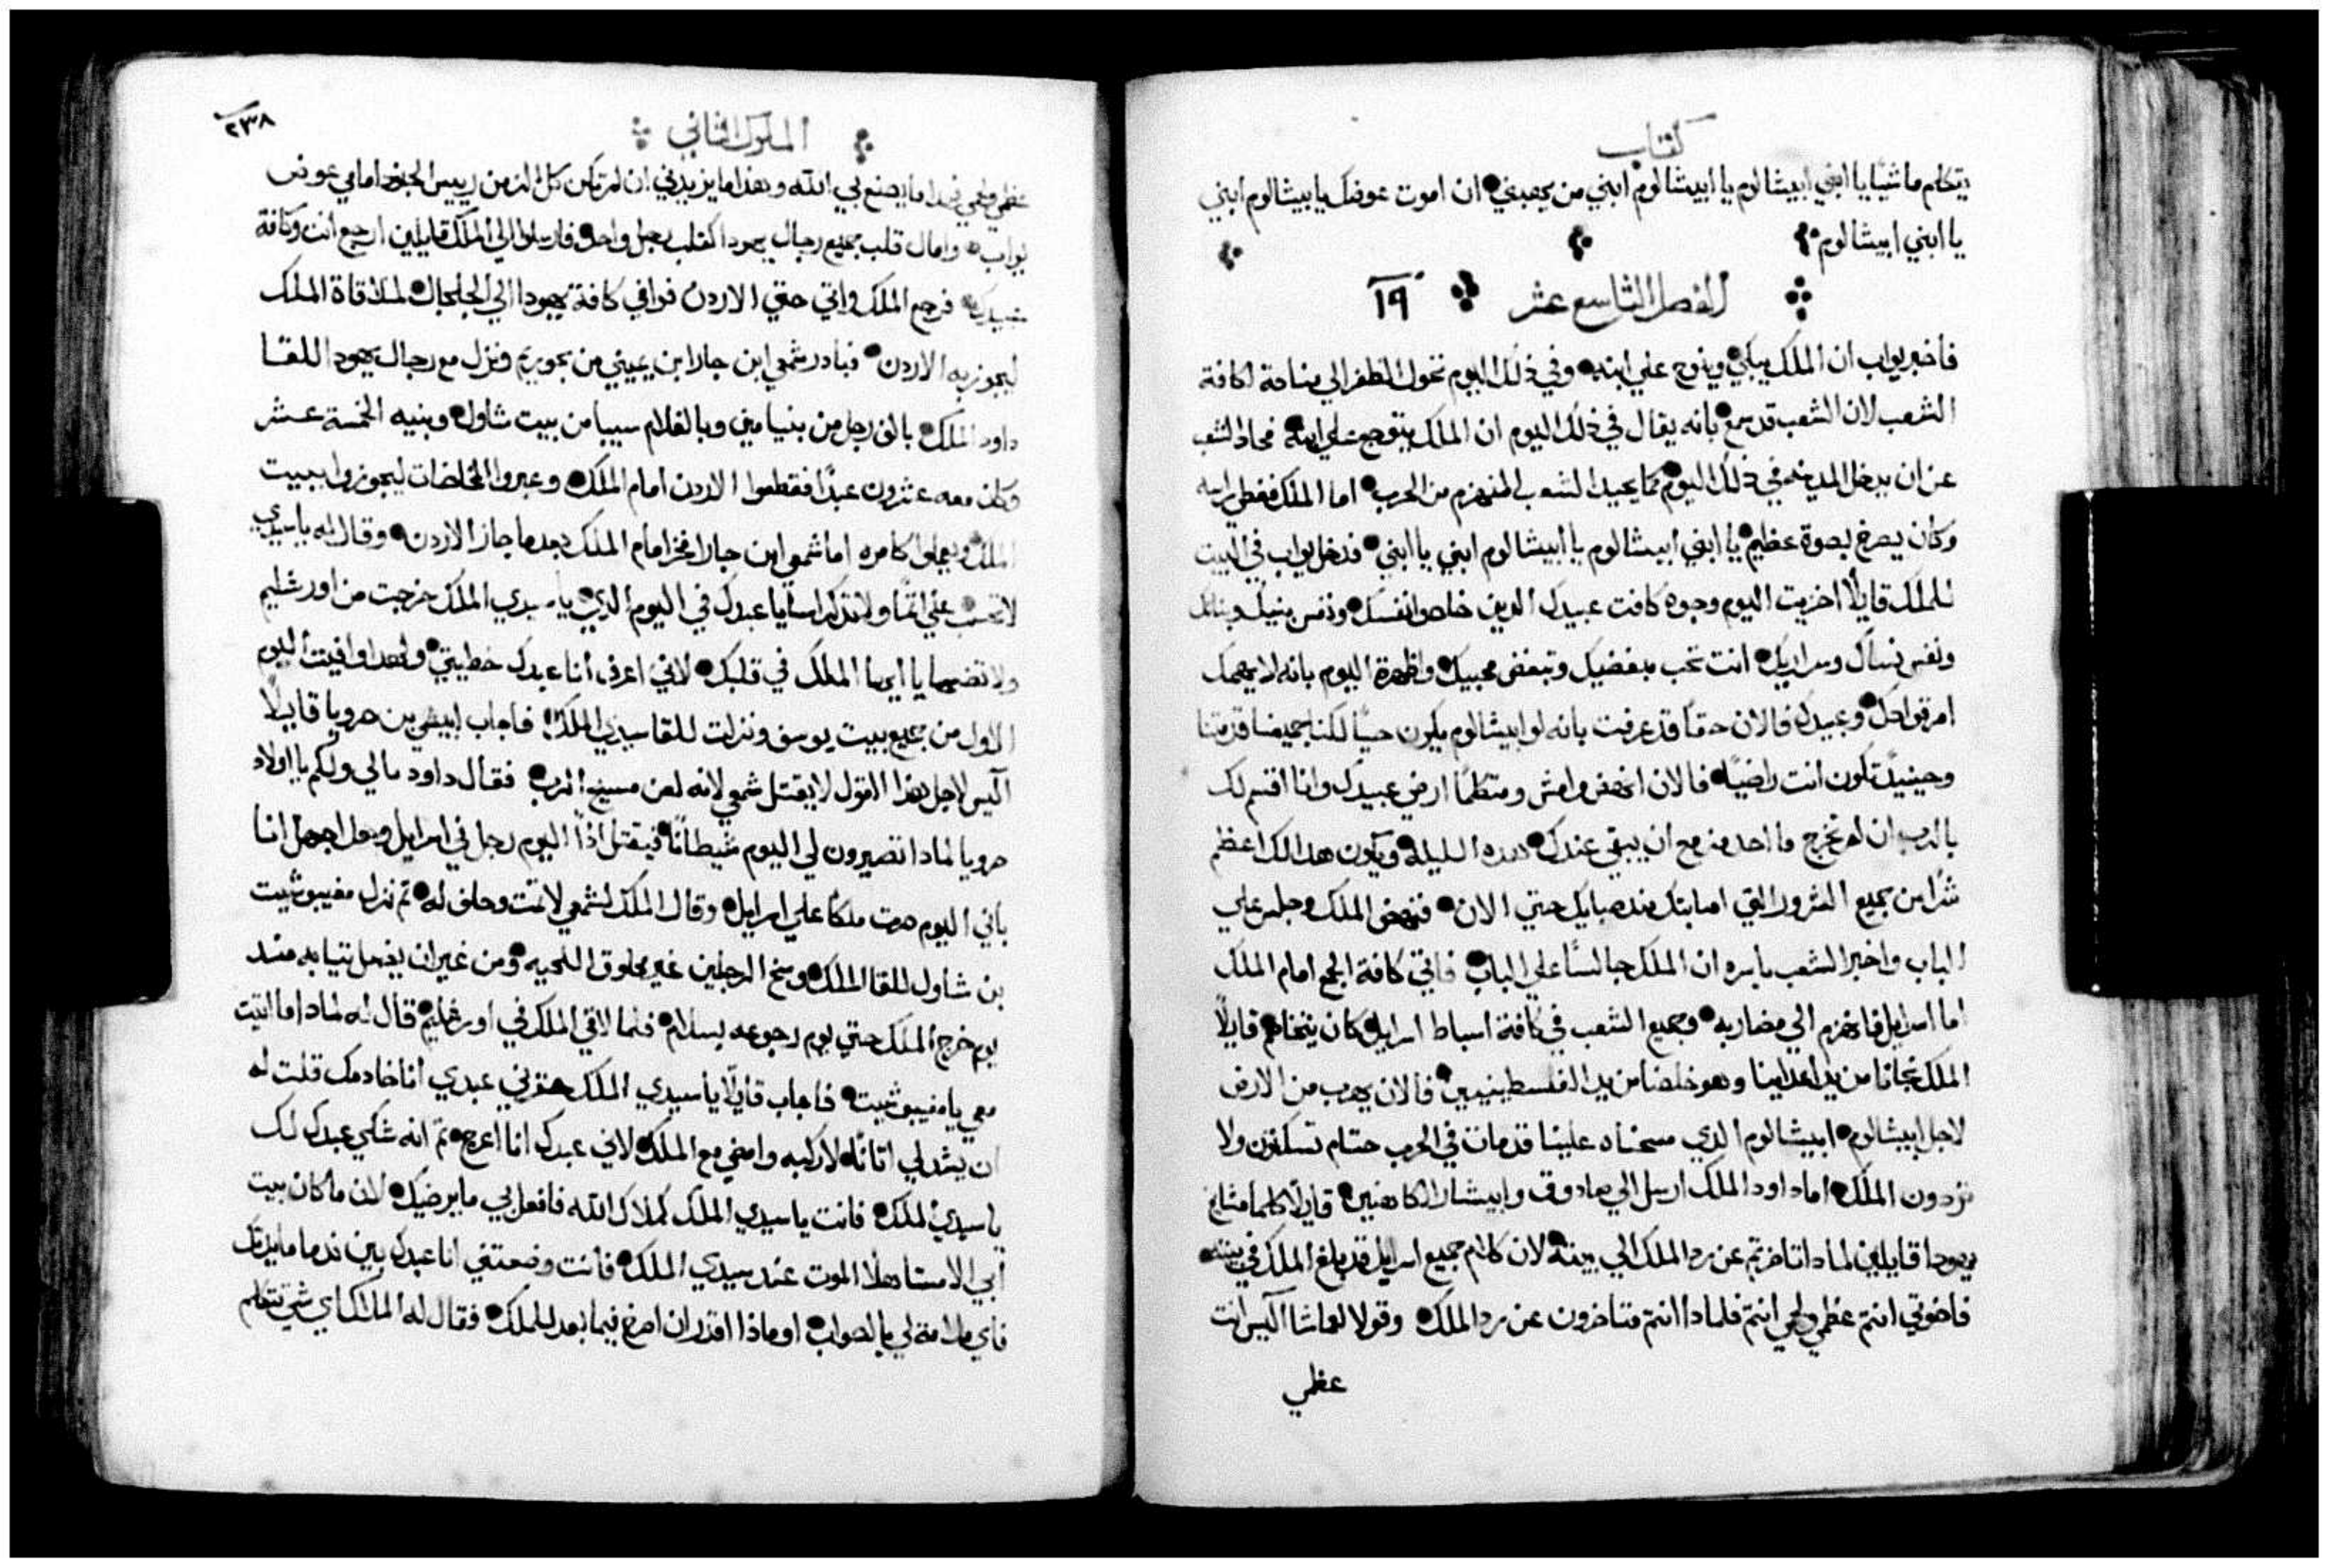 كتاب
يتكلم ماشيًا يا ابني ابيشالوم يا ابيشالوم ابني من يهبني ان اموت عوضك يا بيشالوم ابني
يا ابني ابيشالوم
الفصل التاسع عشر ١٩
فاخبر يواب ان الملك يبكي وينوح علي ابنه وفي ذلك اليوم تحول الظفر الي مناحة لكافة
الشعب لان الشعب قد سمع بانه يقال في ذلك اليوم ان الملك يتوجع علي ابنه فحاد الشعب
عن ان يدخل المدينه في ذلك اليوم كما يحيد الشعب المنهزم من الحرب اما الملك فغطي راسه
وكان يصرخ بصوة عظيم يا ابني ابيشالوم يا ابيشالوم ابني يا ابني فدخل يواب في البيت
للملك قايلًا اخزيت اليوم وجوه كافت عبيدك الدين خلصوا نفسك ونفس بنيك وبناتك
ونفس نساك وسراريك انت تحب مبغضيك وتبغض محبيك واظهرة اليوم بانه لا يهمك
امر قوادك وعبيدك فالان حقًا قد عرفت بانه لو ابيشالوم يكون حيًا لكنا جميعنا قد متنا
وحينيدٍ تكون انت راضيًا فالان انهض وامش ومتكلمًا ارضي عبيدك وانا اقسم لك
بالرب ان لم تخرج ما احد مزمع ان يبقي عندك هده الليلة ويكون هدا لك اعظم
شرًا من جميع الشرور التي اصابتك مند صبايك حتي الان فنهض الملك وجلس علي
الباب واخبر الشعب باسره ان الملك جالسًا علي الباب فاتي كافة الجمع امام الملك
اما اسراييل فانهزم الي مضاربه وجميع الشعب في كافة اسباط اسراييل كان يتخاصم قايلًا
الملك نجانا من يد اعداينا وهو خلصنا من يد الفلسطينيين فالان يهرب من الارض
لاجل ابيشالوم ابيشالوم الدي مسحناه علينا قد مات في الحرب حتام تسكتون ولا
تردون الملك اما داود الملك ارسل الي صادوق وابيشار الكاهنين قايلًا كلما مشايخ
يهودا قايلين لمادا تاخرتم عن رد الملك الي بيته لان كلام جميع اسراييل قد بلغ الملك في بيته
فاخوتي انتم عظمي ولحمي انتم فلمادا انتم متاخرون عن رد الملك وقولا لعماشا اليس انت
عظمي
٢٣٨
الملوك الثاني
عظمي ولحمي هدا ما يصنع بي الله وهدا ما يزيدني ان لم تكن كل الزمن رييس الجنود امامي عوض
يواب وامال قلب جميع رجال يهودا كقلب رجل واحد فارسلوا الي الملك قايلين ارجع انت وكافة
عبيدك فرجع الملك واتي حتي الاردن فوافي كافة يهودا الي الجلجال لملاقاة الملك
ليجوز به الاردن فبادر شمعي ابن جارا ابن يميني من بحوريم ونزل مع رجال يهودا للقا
داود الملك بالف رجل من بنيامين وبالغلام سيبا من بيت شاول وبنيه الخمسة عشر
وكان معه عشرون عبدًا فقطعوا الاردن امام الملك وعبروا المخاضات ليجوزوا ببيت
الملك ويعملوا كامره اما شمعي ابن جارا فخر امام الملك بعد ما جاز الاردن وقال له يا سيدي
لا تحسب علي اثمًا ولا تدكر اسايا عبدك في اليوم الدي يا سيدي الملك خرجت من اورشليم
ولا تضعها يا ايها الملك في قلبك لاني اعرف انا عبدك خطيتي ولهدا وافيت اليوم
الاول من جميع بيت يوسف ونزلت للقا سيدي الملك فاجاب ابيشي بن صرويا قايلًا
اليس لاجل هدا القول لا يقتل شمعي لانه لعن مسيح الرب فقال داود مالي ولكم يا اولاد
صرويا لمادا تصيرون لي اليوم شيطانًا فيقتل ادًا اليوم رجل في اسراييل وهل اجهل انا
باني اليوم صرت ملكًا علي اسراييل وقال الملك لشمعي لا تمت وحلف له تم نزل مفيبوشيت
بن شاول للقا الملك وسخ الرجلين غير محلوق اللحيه ومن غير ان يغسل تيابه مند
يوم خرج الملك حتي يوم رجوعه بسلام فلما لاقي الملك في اورشليم قال له لمادا ما اتيت
معي يا مفيبوشيت فاجاب قايلًا يا سيدي الملك حقرني عبدي انا خادمك قلت له
ان يشد لي اتانًا لاركبه وامضي مع الملك لاني عبدك انا اعرج تم انه شكي عبدك لك
يا سيدي الملك فانت يا سيدي الملك كملاك الله فافعل بي ما يرضيك لان ما كان بيت
ابي الا مستاهلًا الموت عند سيدي الملك فانت وضعتني انا عبدك بين ندما مايدتك
فاي ملامة لي بالصواب او ماذا اقدر ان اصرخ فيما بعد للملك فقال له الملك اي شي تتكلم